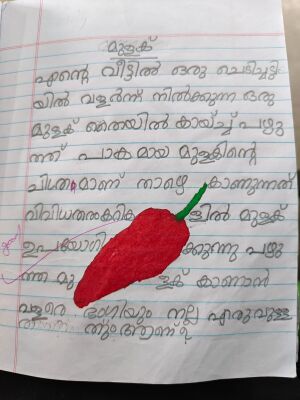 മുളക്
എന്റെ വീട്ടിൽ ഒരു ചെടിച്ചട്ടി
യിൽ വളർന്ന് നിൽക്കുന്ന ഒരു
മുളക് തൈയിൽ കായ്ച്ച് പഴു
ത്ത് പാകമായ മുളകിന്റെ
ചിത്രമാണ് താഴെ കാണുന്നത്
വിവിധതരകറിക ളിൽ മുളക്
ഉപയോഗി ക്കുന്നു പഴു
ത്ത മു ളക് കാണാൻ
വളരെ ഭംഗിയും നല്ല എരുവുള്ള